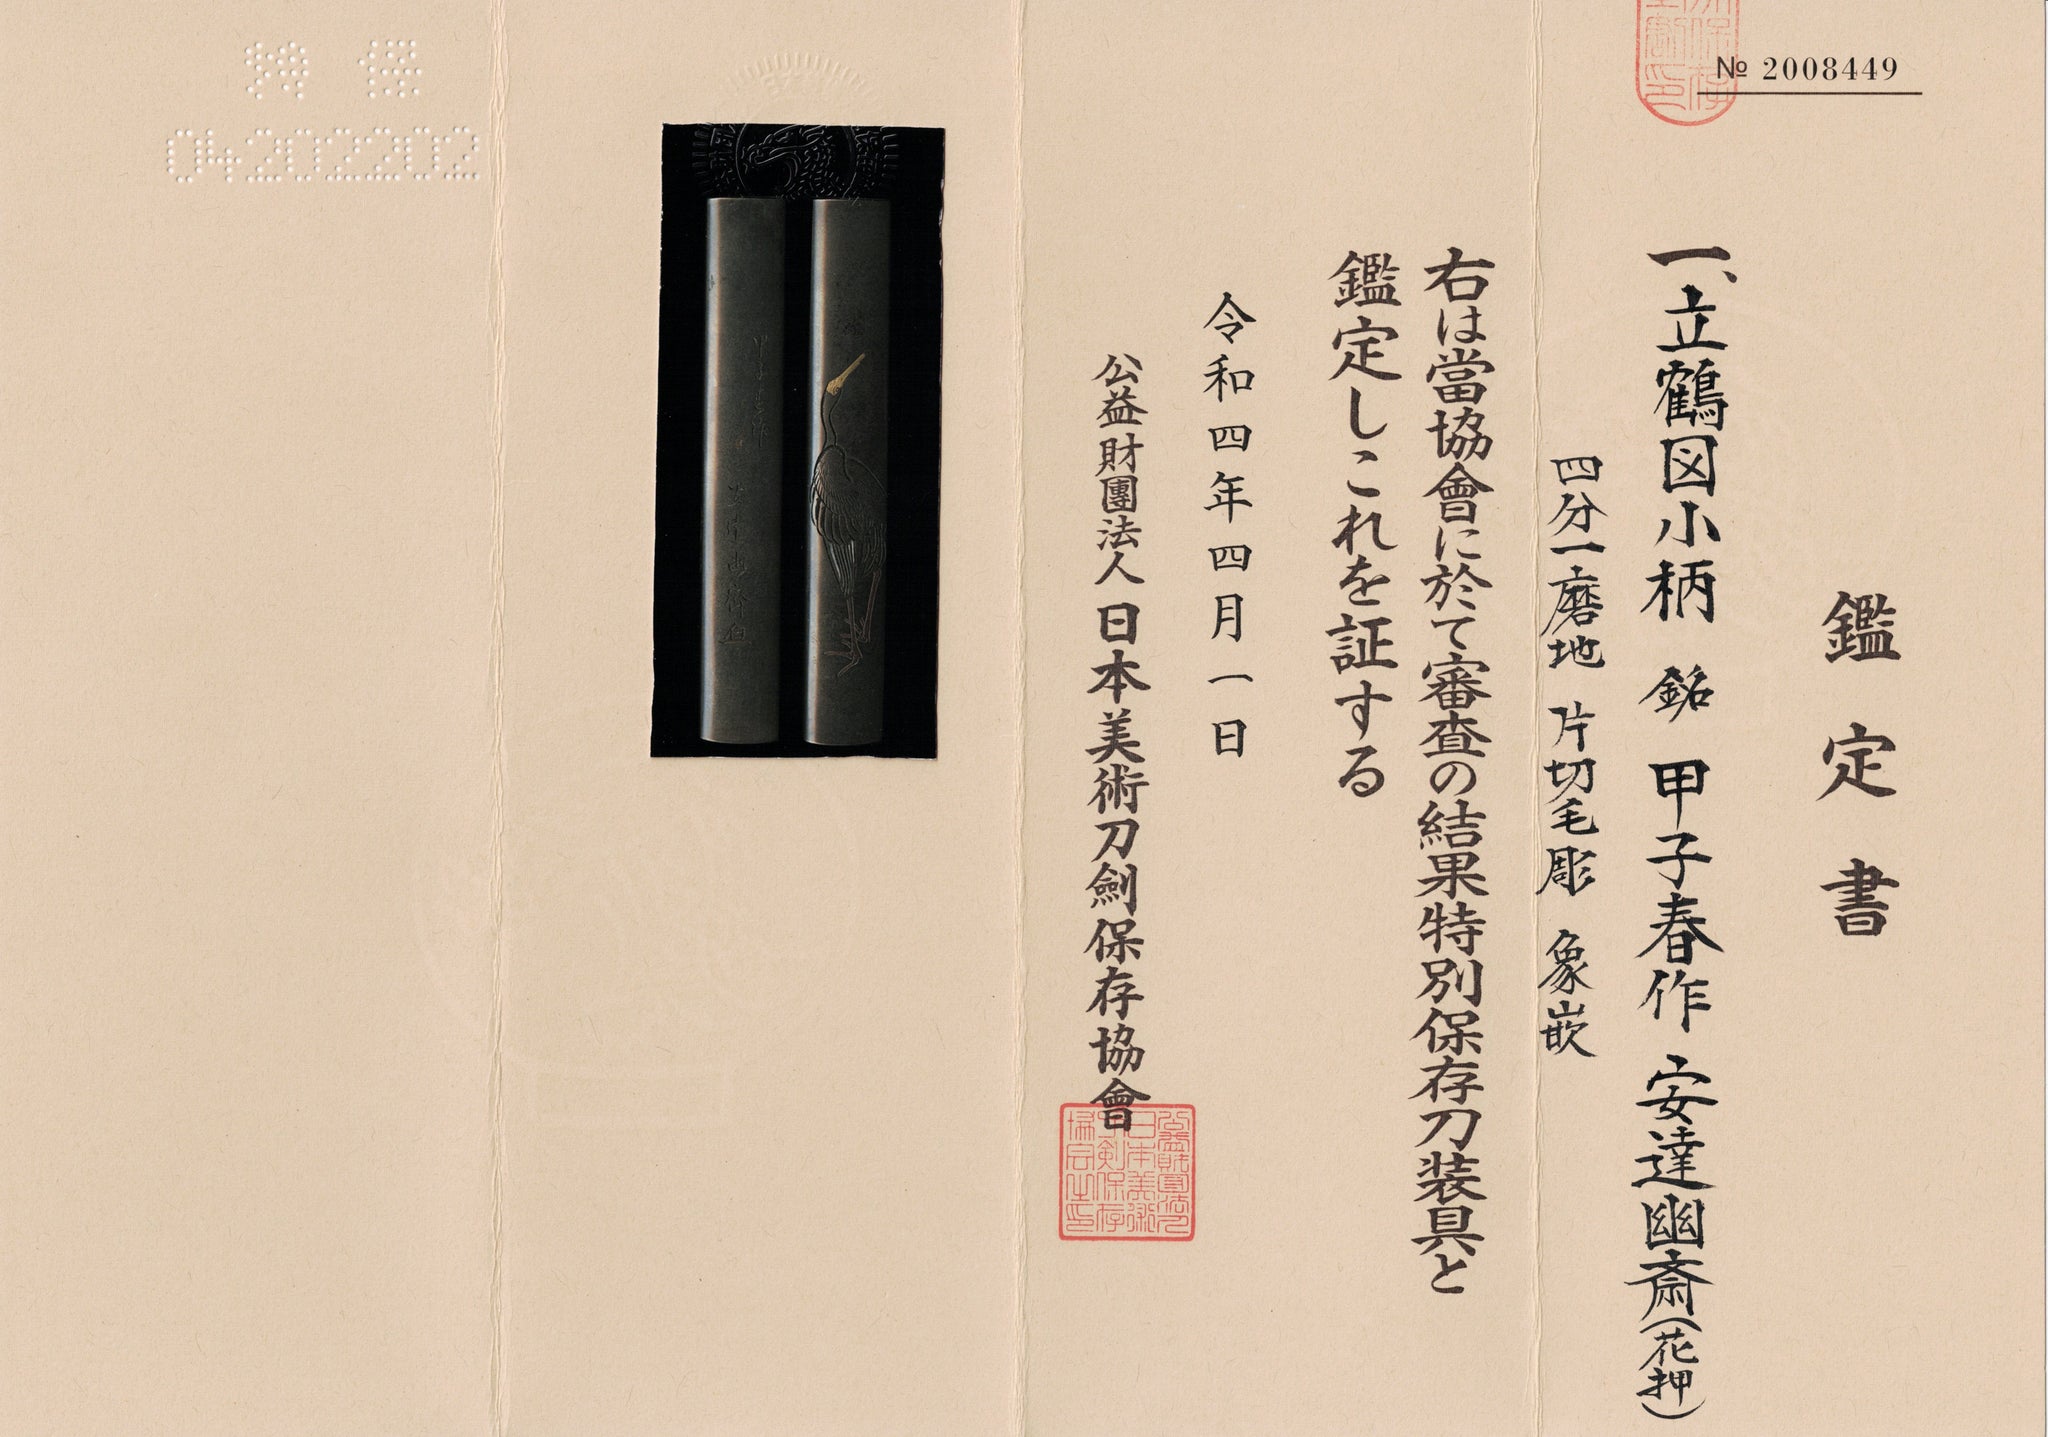 № 2008449
鑑定書
一、立鶴図小柄 銘 甲子春作 安達幽斎(花押)
四分一磨地 片切毛彫 象嵌
右は當協會に於て審査の結果特別保存刀装具と
鑑定しこれを証する
令和四年四月一日
公益財團法人日本美術刀劍保存協會
特保
04202202